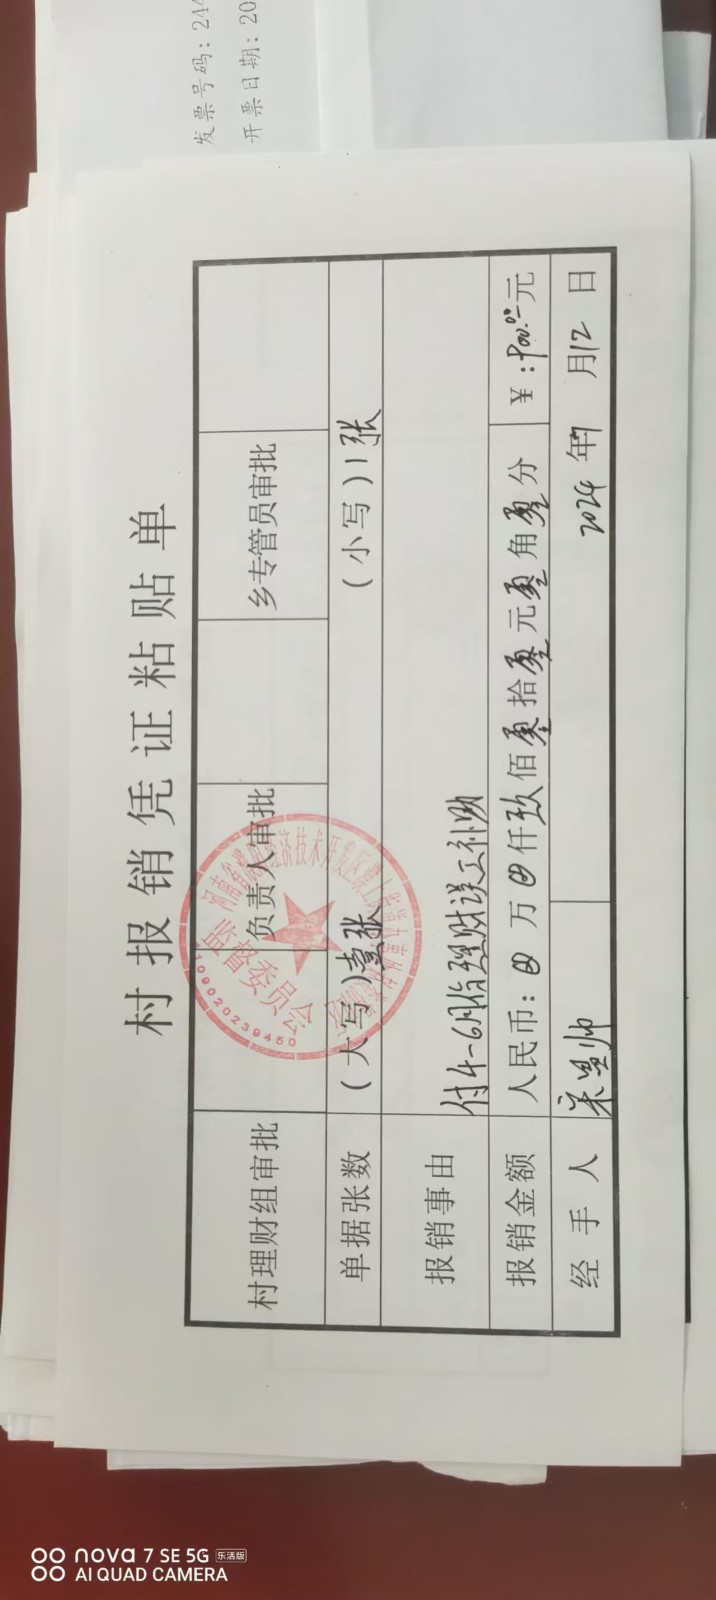 发票号码：244
开票日期：20
村报销凭证粘贴单
村理财组审批 负责人审批 乡专管员审批
单据张数 （大写）壹张 （小写）1张
报销事由 付4-6月份理财误工补助
报销金额 人民币：⊘万⊘仟玖佰零拾零元零角零分 ￥：900.00元
经手人 2024年7月12日
监督委员会
4109020239460
nova 7 SE 5G 乐活版
AI QUAD CAMERA